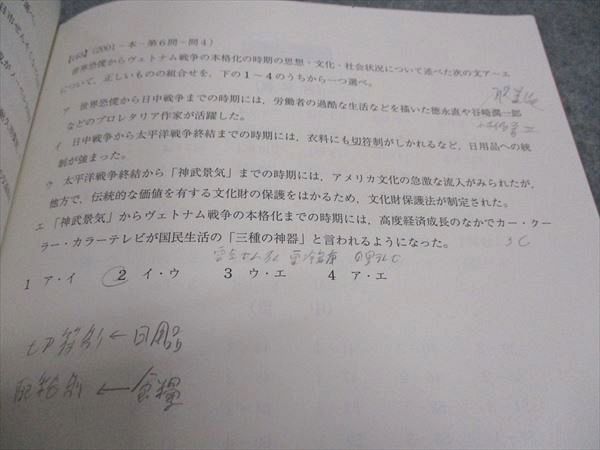 【63】(2001-本-第6問-問4)
世界恐慌からヴェトナム戦争の本格化の時期の思想・文化・社会状況について述べた次の文ア〜エ
について、正しいものの組合せを、下の1〜4のうちから一つ選べ。
ア 世界恐慌から日中戦争までの時期には、労働者の過酷な生活などを描いた徳永直や谷崎潤一郎
などのプロレタリア作家が活躍した。
イ 日中戦争から太平洋戦争終結までの時期には、衣料にも切符制がしかれるなど、日用品への統
制が強まった。
ウ 太平洋戦争終結から「神武景気」までの時期には、アメリカ文化の急激な流入がみられたが、
他方で、伝統的な価値を有する文化財の保護をはかるため、文化財保護法が制定された。
エ「神武景気」からヴェトナム戦争の本格化までの時期には、高度経済成長のなかでカー・クー
ラー・カラーテレビが国民生活の「三種の神器」と言われるようになった。
3C
1 ア・イ 2 イ・ウ 3 ウ・エ 4 ア・エ
切符制←日用品
配給制←食糧